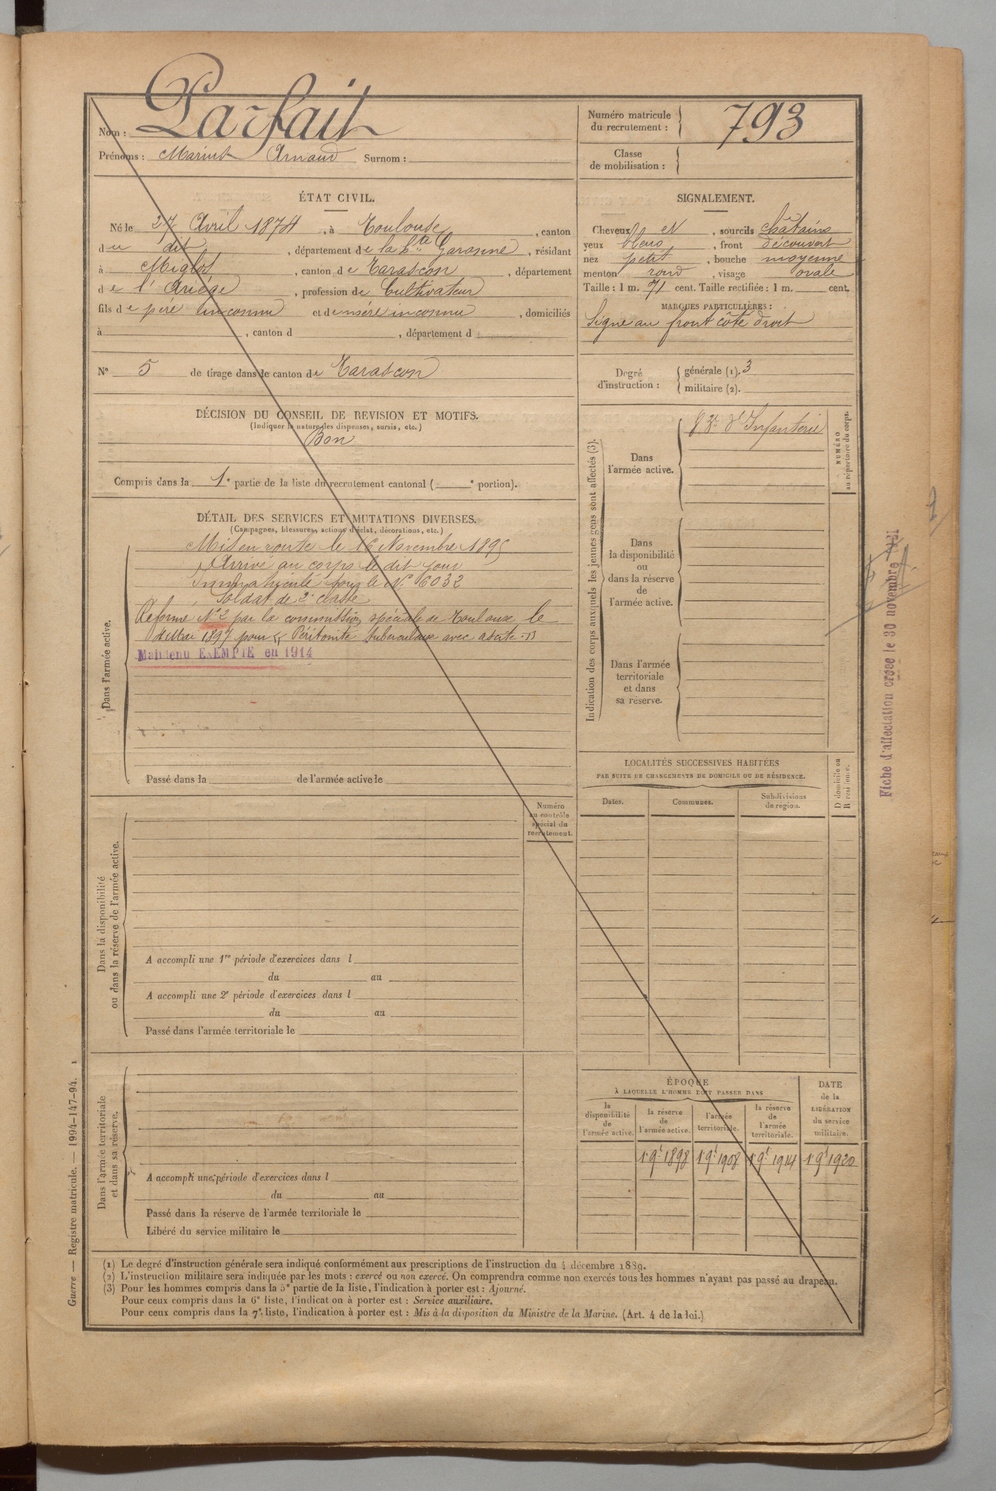 Nom : Parfait
Prénoms : Marius Arnaud Surnom :
Numéro matricule du recrutement : 793
Classe de mobilisation :
ÉTAT CIVIL.
Né le 27 Avril 1874, à Toulouse, canton
du dit, département de la Hte Garonne, résidant
à Miglos, canton de Tarascon, département
de l'Ariège, profession de Cultivateur
fils de père inconnu et de mère inconnue, domiciliés
à , canton d , département d
No 5 de tirage dans le canton de Tarascon
DÉCISION DU CONSEIL DE REVISION ET MOTIFS.
(Indiquer la nature des dispenses, sursis, etc.)
Bon
Compris dans la 1e partie de la liste du recrutement cantonal ( e portion).
DÉTAIL DES SERVICES ET MUTATIONS DIVERSES.
(Campagnes, blessures, actions d'éclat, décorations, etc.)
Dans l'armée active.
Mis en route le 16 Novembre 1895
Arrivé au corps le dit jour
Immatriculé sous le No 6032
Soldat de 2e classe
Réformé No 2 par la commission spéciale de Toulouse le
Mai 1897 pour Péritonite tuberculeuse avec
Maintenu EXEMPTÉ en 1914
Passé dans la de l'armée active le
Numéro au contrôle spécial du recrutement.
Dans la disponibilité ou dans la réserve de l'armée active.
A accompli une 1re période d'exercices dans l
du au
A accompli une 2e période d'exercices dans l
du au
Passé dans l'armée territoriale le
Dans l'armée territoriale et dans sa réserve.
A accompli une période d'exercices dans l
du au
Passé dans la réserve de l'armée territoriale le
Libéré du service militaire le
SIGNALEMENT.
Cheveux et, sourcils châtains
yeux bleus, front découvert
nez petit, bouche moyenne
menton rond, visage ovale
Taille : 1 m. 71 cent. Taille rectifiée : 1 m. cent.
MARQUES PARTICULIÈRES :
Signe au front côté droit
Degré d'instruction :
générale (1). 3
militaire (2).
Indication des corps auxquels les jeunes gens sont affectés (3).
Dans l'armée active.
d'Infanterie
NUMÉRO au répertoire du corps.
Dans la disponibilité ou dans la réserve de l'armée active.
Dans l'armée territoriale et dans sa réserve.
LOCALITÉS SUCCESSIVES HABITÉES
PAR SUITE DE CHANGEMENTS DE DOMICILE OU DE RÉSIDENCE.
Dates. Communes. Subdivisions de région. D domicile ou R résidence.
ÉPOQUE
À LAQUELLE L'HOMME DOIT PASSER DANS
la disponibilité de l'armée active.
la réserve de l'armée active.
l'armée territoriale.
la réserve de l'armée territoriale.
DATE de la LIBÉRATION du service militaire.
1 9e 1898 1 9e 1908 1 9e 1914 1 9e 1920
(1) Le degré d'instruction générale sera indiqué conformément aux prescriptions de l'instruction du 4 décembre 1889.
(2) L'instruction militaire sera indiquée par les mots : exercé ou non exercé. On comprendra comme non exercés tous les hommes n'ayant pas passé au drapeau.
(3) Pour les hommes compris dans la 5e partie de la liste, l'indication à porter est : Ajourné.
Pour ceux compris dans la 6e liste, l'indication à porter est : Service auxiliaire.
Pour ceux compris dans la 7e liste, l'indication à porter est : Mis à la disposition du Ministre de la Marine. (Art. 4 de la loi.)
Guerre — Registre matricule. — 1994-147-94. 1
Fiche d'affectation créée le 30 novembre